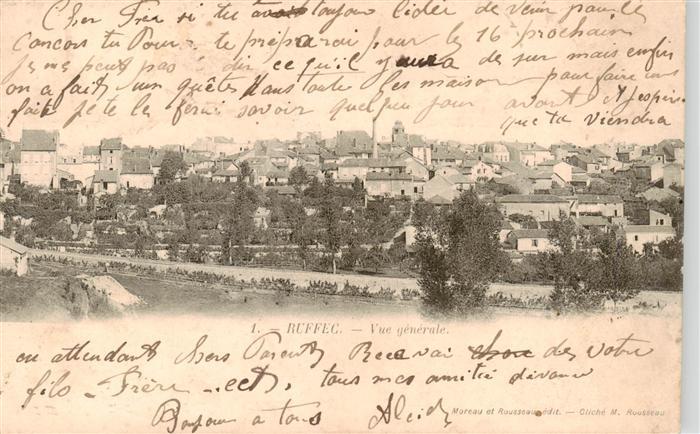 Cher Frère si tu avais toujour l'idée de venir pour le
concors tu pourra te préparai pour le 16 prochain
je ne peut pas ô dire ce qu'il y aura de sur mais enfin
on a fait un quêtes dans toute les maison pour faire une
fête je te le ferai savoir quelque jour avant J'espère
que tu viendra
1. - RUFFEC. - Vue générale.
en attendant Chers Parents Recevai de votre
filo Frère ect, tous mes amitié d'avance
Bonjour a tous Alcide
Moreau et Rousseau édit. - Cliché M. Rousseau